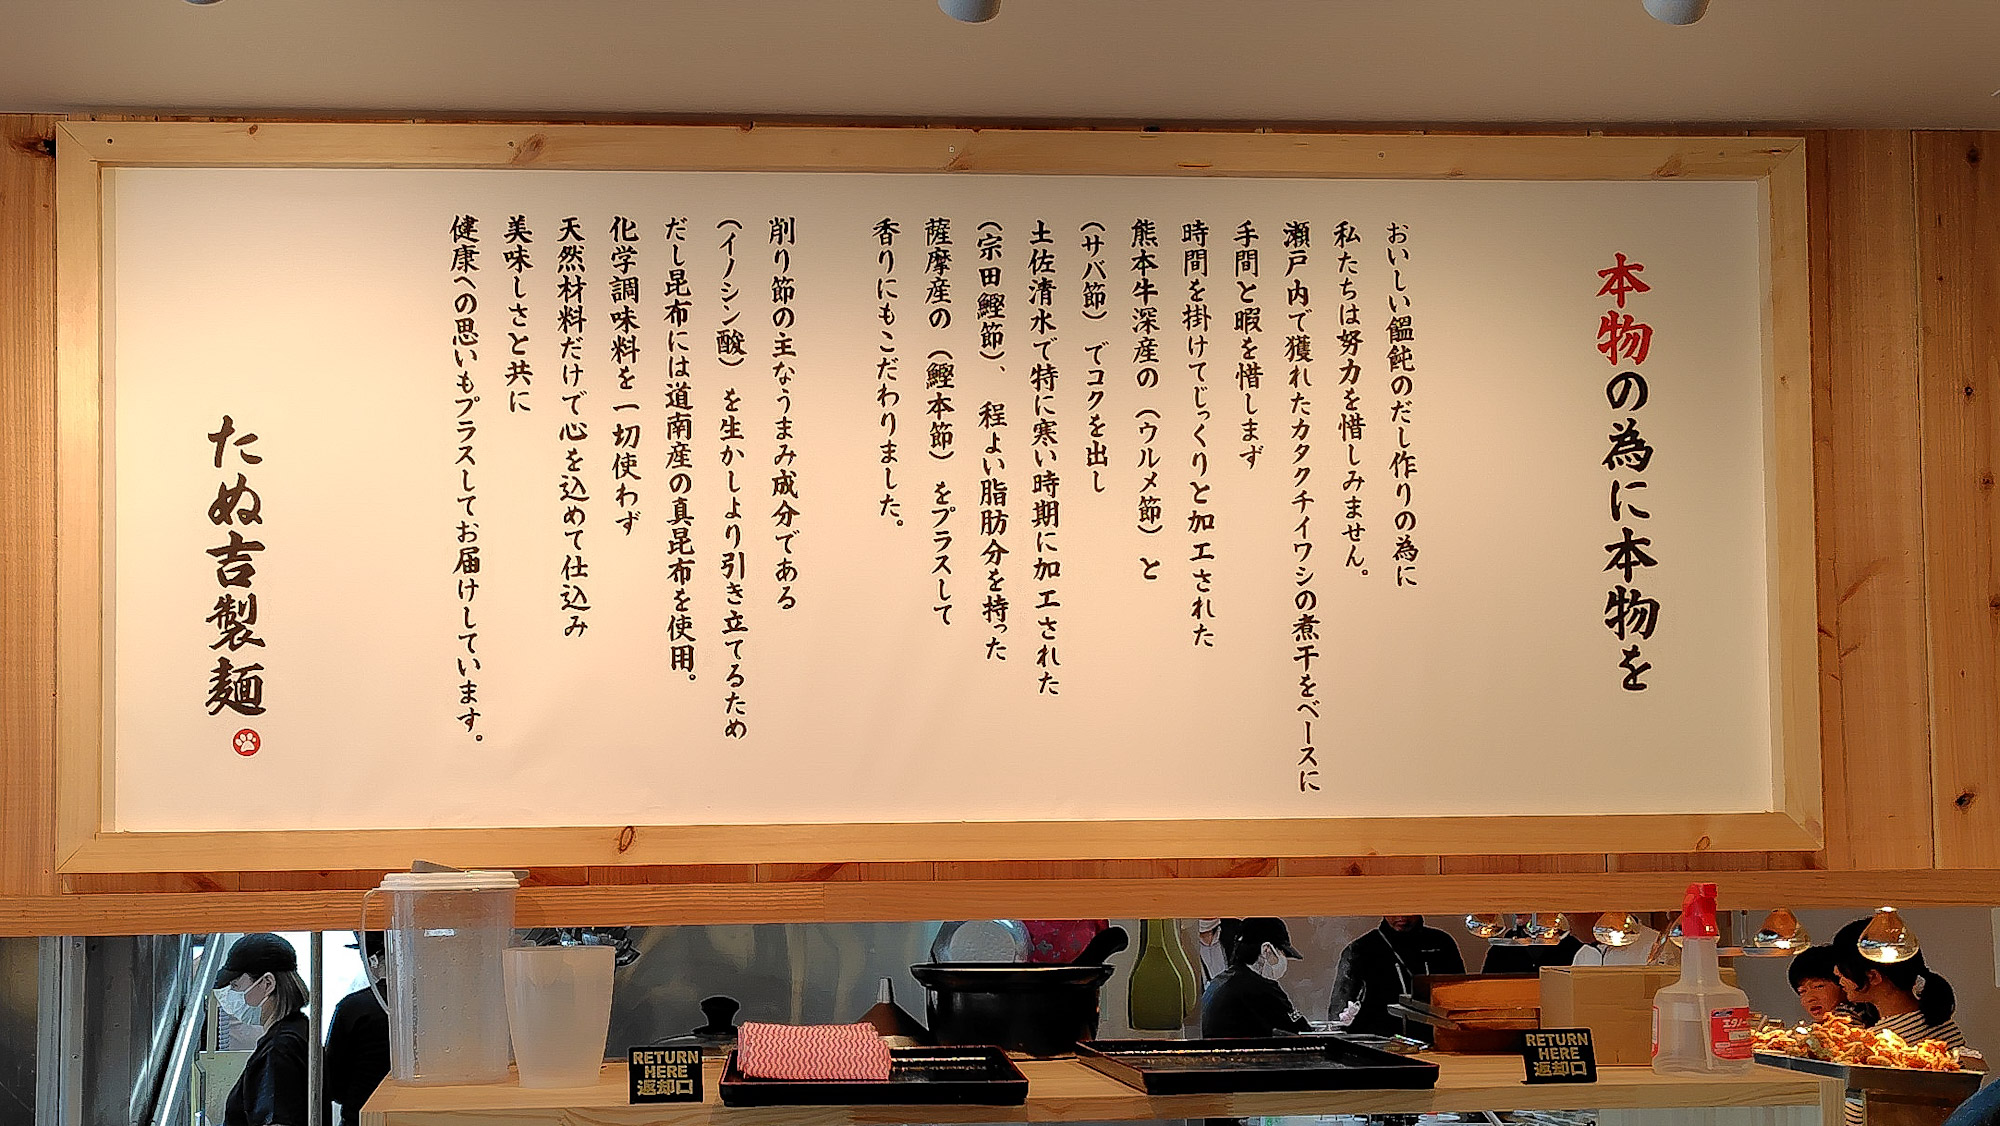 本物の為に本物を
おいしい饂飩のだし作りの為に
私たちは努力を惜しみません。
瀬戸内で獲れたカタクチイワシの煮干をベースに
手間と暇を惜しまず
時間を掛けてじっくりと加工された
熊本牛深産の（ウルメ節）と
（サバ節）でコクを出し
土佐清水で特に寒い時期に加工された
（宗田鰹節）、程よい脂肪分を持った
薩摩産の（鰹本節）をプラスして
香りにもこだわりました。
削り節の主なうまみ成分である
（イノシン酸）を生かしより引き立てるため
だし昆布には道南産の真昆布を使用。
化学調味料を一切使わず
天然材料だけで心を込めて仕込み
美味しさと共に
健康への思いもプラスしてお届けしています。
たぬ吉製麺
RETURN
HERE
返却口
RETURN
HERE
返却口